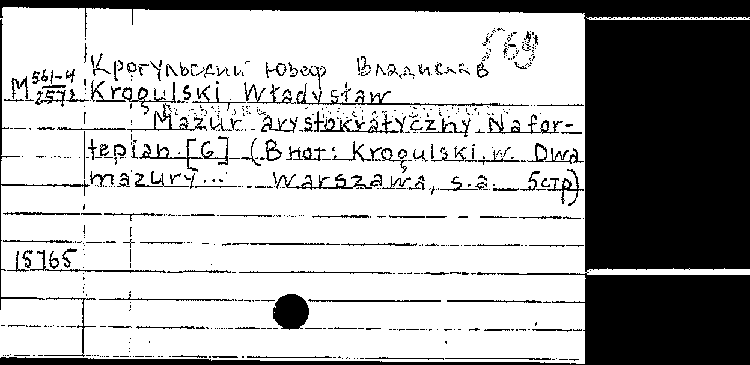 569
Крогульский Юзеф Владислав
М 561-4
2572
Krogulski, Władysław
Mazur arystokratyczny. Na for-
tepian. [G] (В нот: Krogulski, W. Dwa
mazury... Warszawa, s.a. 5 стр)
15765